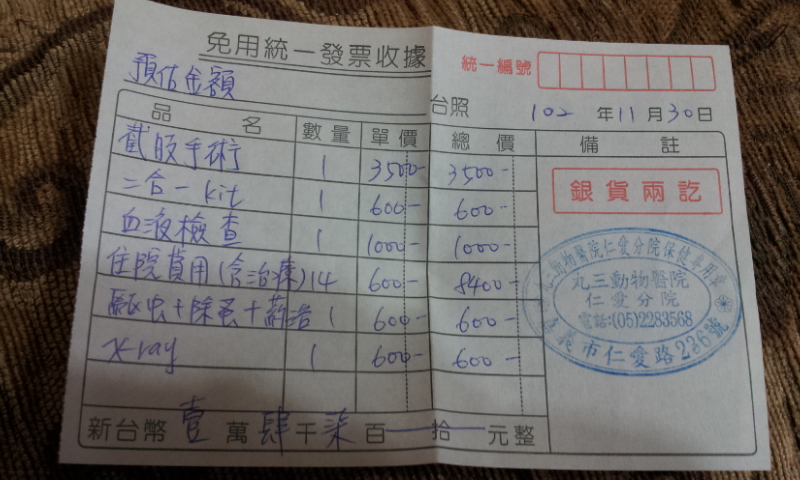 免用統一發票收據
統一編號
預估金額
台照 102 年 11 月 30 日
品名 數量 單價 總價 備註
截肢手術 1 3500- 3500-
二合一 kit 1 600- 600-
血液檢查 1 1000- 1000-
住院費用(含治療) 14 600- 8400-
驅虫+除蚤+藥浴 1 600- 600-
x-ray 1 600- 600-
新台幣 壹 萬 肆 千 柒 百 拾 元整
銀貨兩訖
動物醫院仁愛分院保健專用章
丸三動物醫院
仁愛分院
電話:(05)2283568
嘉義市仁愛路236號